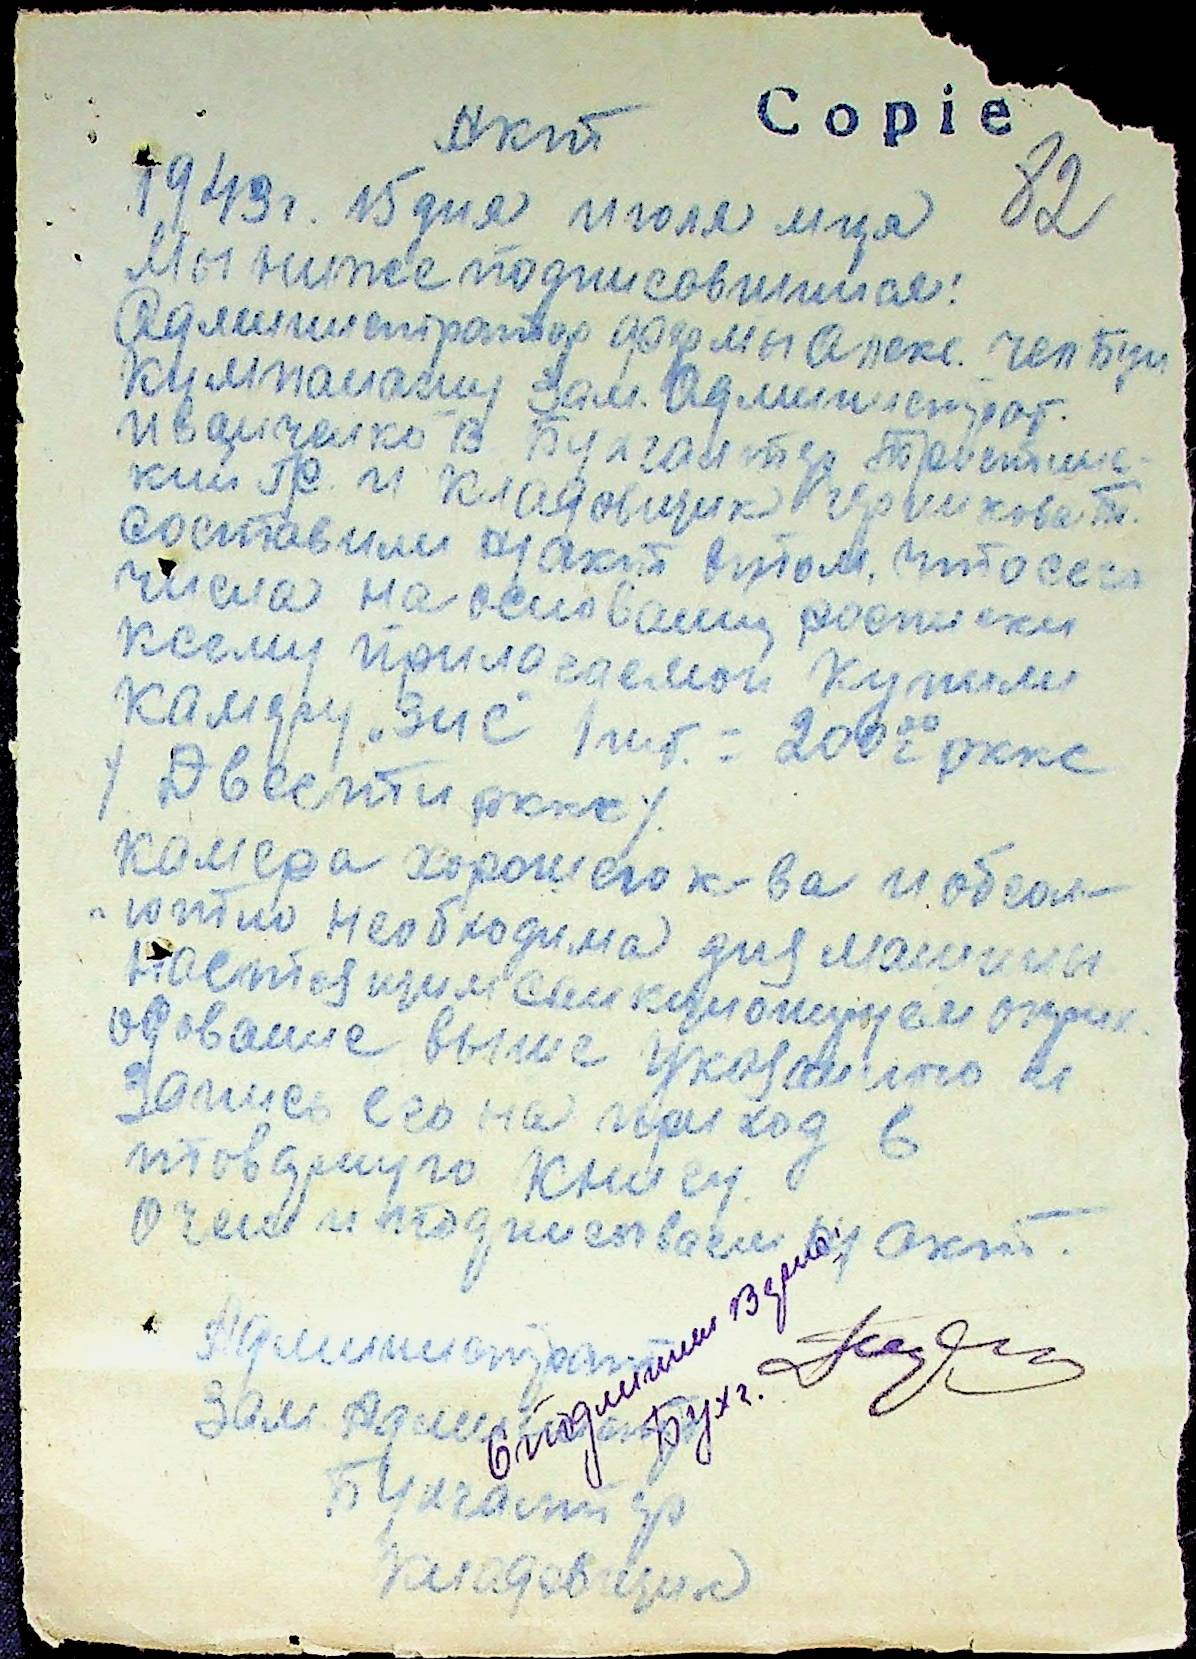 Copie
82
Акт
1943 г. 15 дня июля мця
Мы ниже подписовшиися:
Администратор фермы Алекс.
Зам. Администрат.
Иваниченко В. Бухгалтер
и Кладовщик
составили акт втом, что сего
числа на основании росписки
ксему прилогаемой купили
Камеру „Зис" 1 шт. = 200 00 ркке
/ Двести ркке /.
Камера хорошего к-ва и обсол-
ютно необходима для машины
Настоящим
одование выше указанного и
Запись его на приход в
товарную Книгу.
О чем и подписываем акт.
Администрат
Зам. Админист
Бухгалтер
Кладовщик
С подлинным верно:
Бухг.